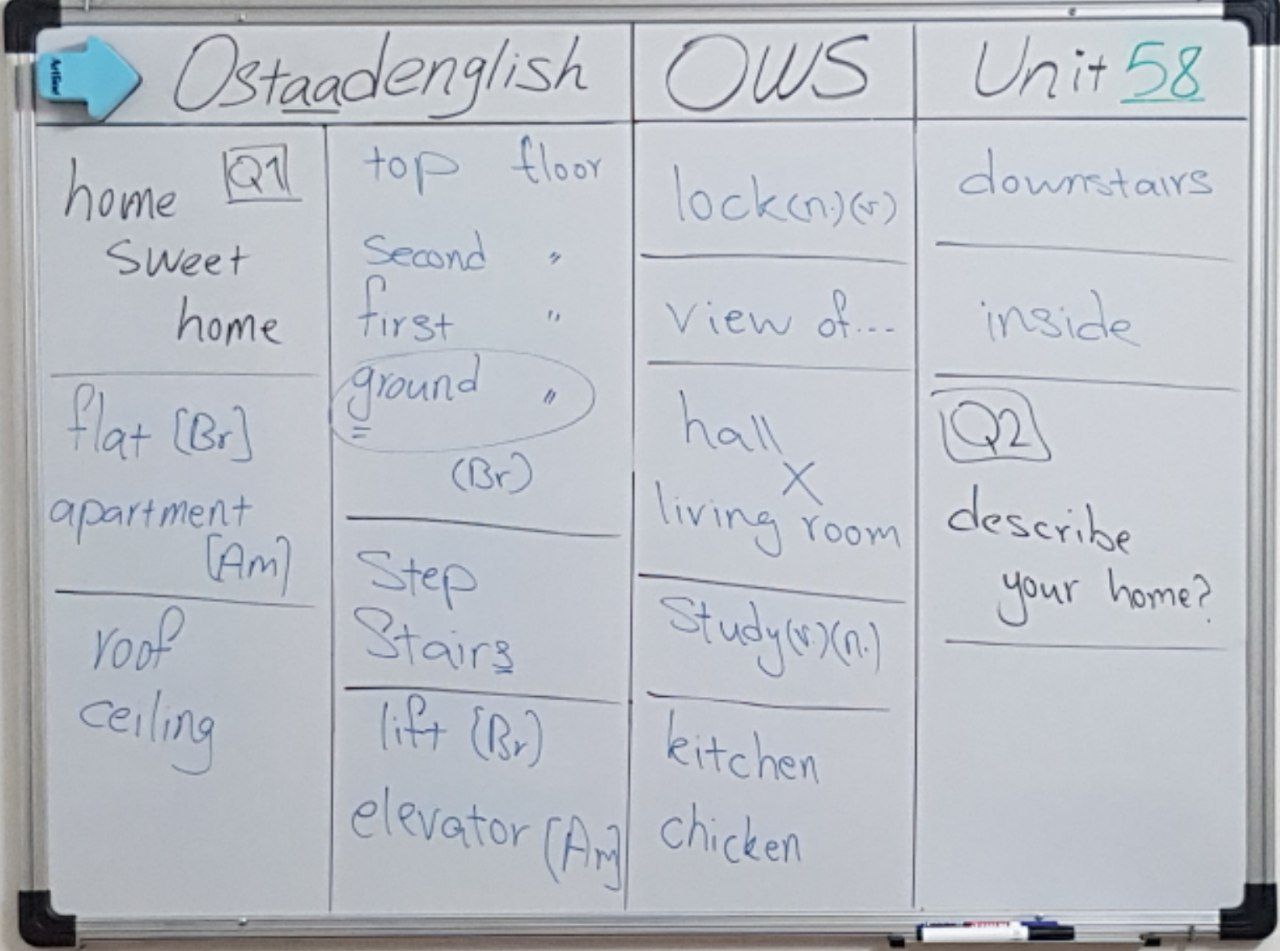 Ostaadenglish
OWS
Unit 58
Q1
home
sweet
home
flat [Br]
apartment
[Am]
roof
ceiling
top floor
Second "
first "
ground "
(Br)
Step
Stairs
lift (Br)
elevator [Am]
lock(n.)(v.)
view of...
hall
X
living room
Study(v.)(n.)
kitchen
chicken
downstairs
inside
Q2
describe
your home?
Artline